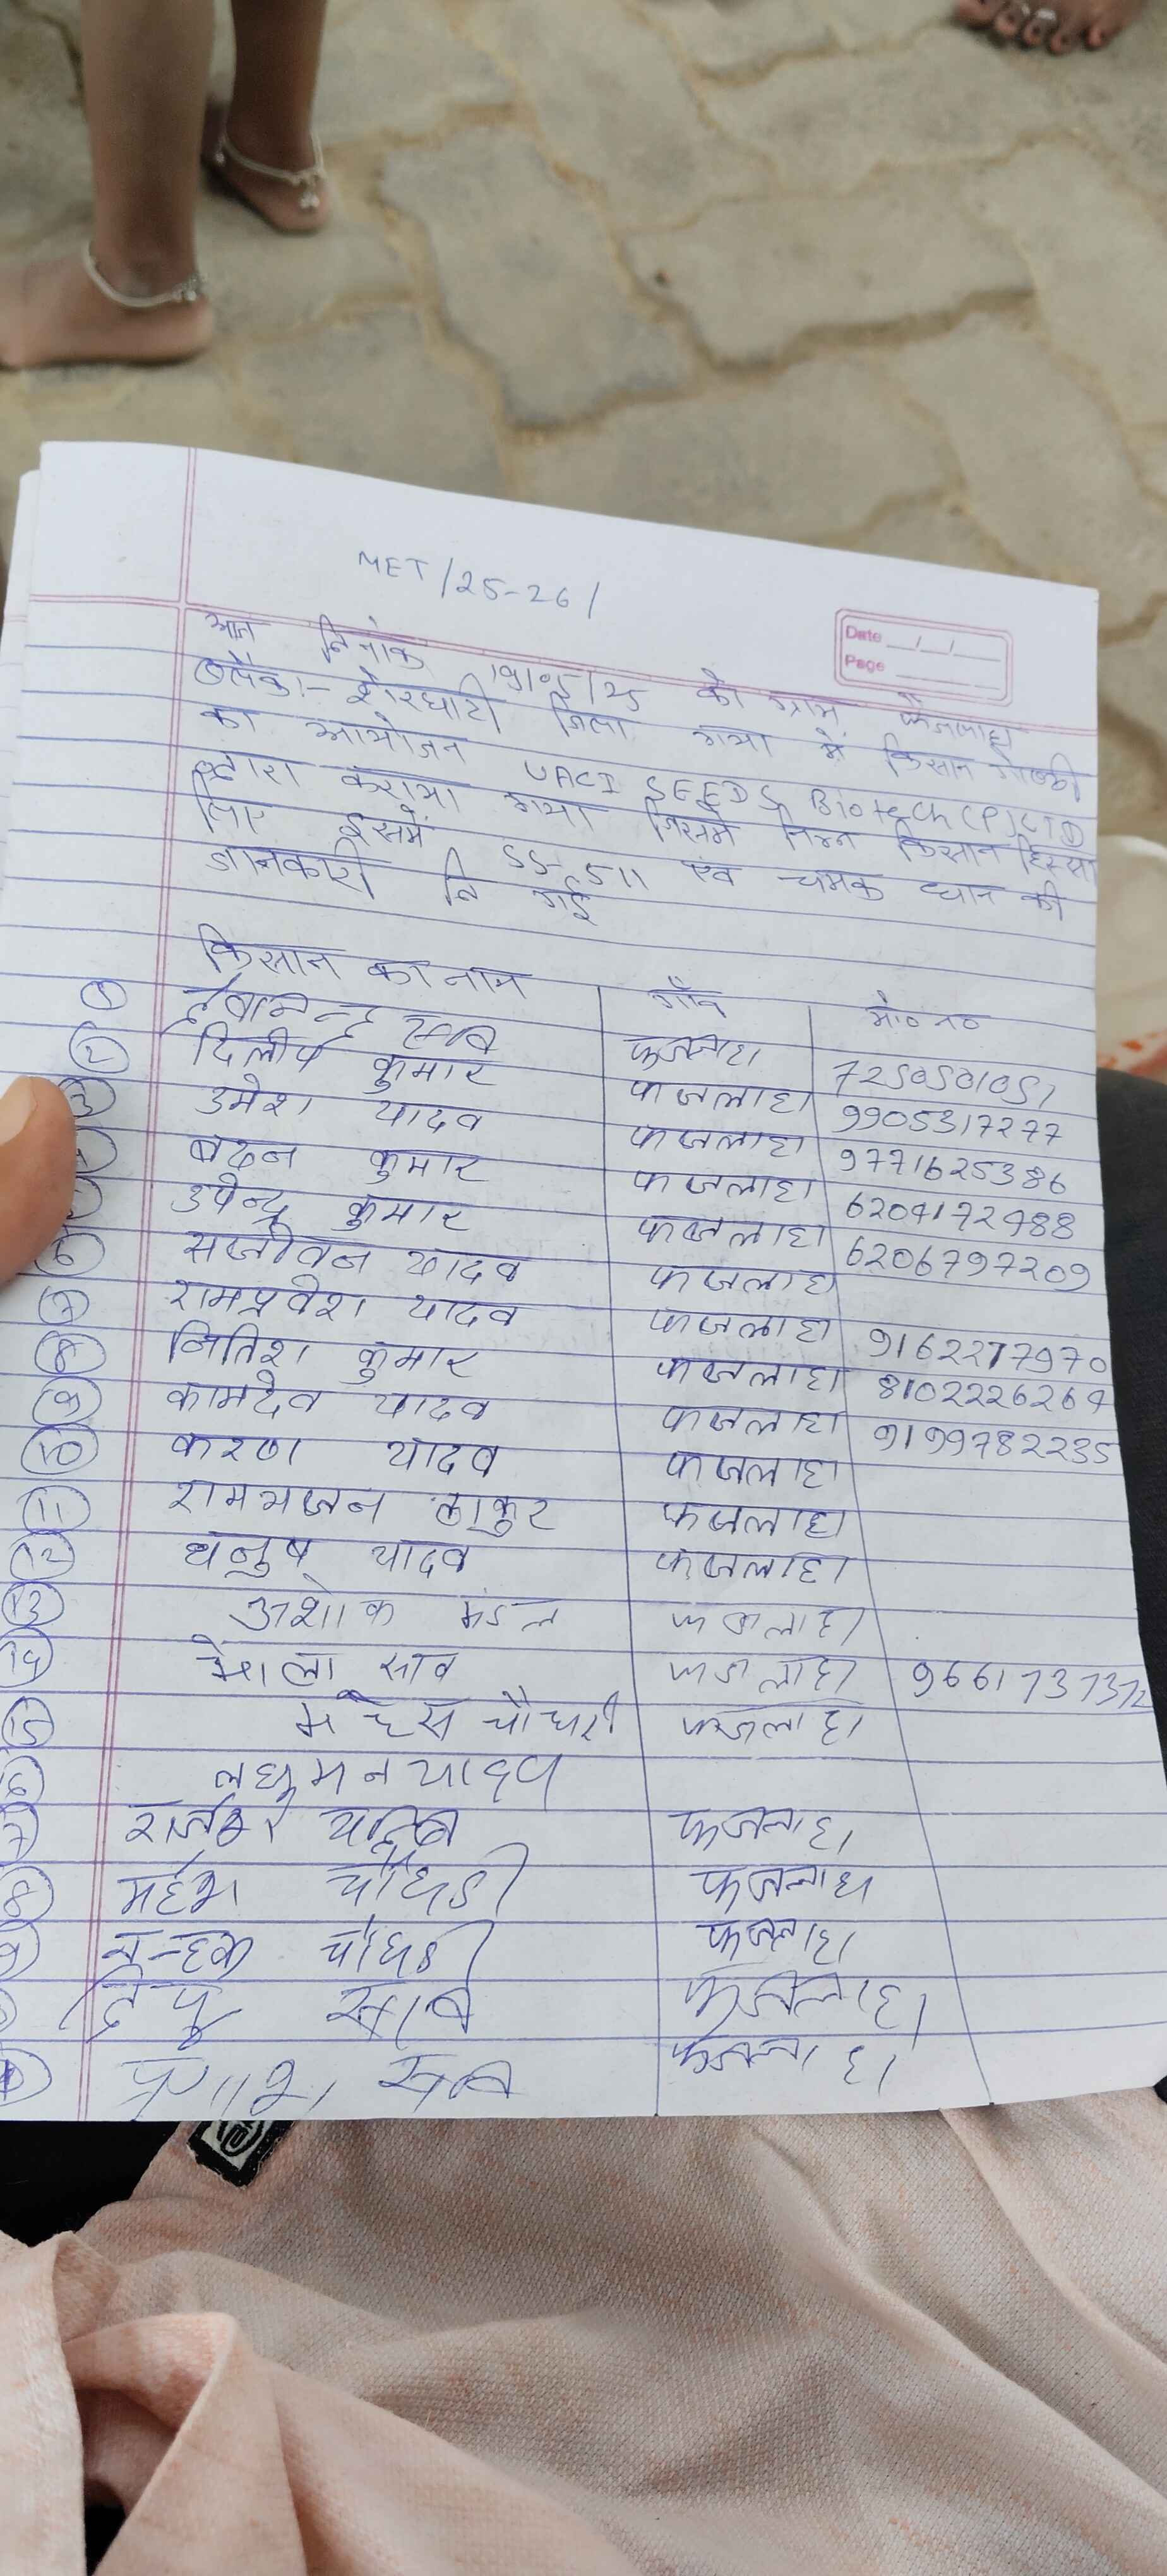 MET/25-26/
Date __/__/__
Page
आज दिनांक 19/05/25 को ग्राम फजलाहा
ब्लौक:- शेरघाटी जिला गया में किसान गोष्ठी
का आयोजन UACI SEEDS Biotech (P) LTD
द्वारा कराया गया जिसमें निम्न किसान हिस्सा
लिए इसमें SS-511 एंव चमक धान की
जानकारी दि गई
किसान का नाम गाँव मो० न०
① फजलाहा 7250501051
② दिलीप कुमार फजलाहा 9905317277
③ उमेश यादव फजलाहा 9771625386
बदन कुमार फजलाहा 6204172488
उपेन्द्र कुमार फजलाहा 6206797209
⑥ सजीवन यादव फजलाहा
⑦ रामप्रवेश यादव फजलाहा 9162277970
⑧ नितिश कुमार फजलाहा 8102226264
⑨ कामदेव यादव फजलाहा 9199782235
⑩ करण यादव फजलाहा
⑪ रामभजन ठाकुर फजलाहा
⑫ धनुष यादव फजलाहा
⑬ अशोक मंडल फजलाहा
⑭ भोला साव फजलाहा 9661737372
⑮ महेस चौधरी फजलाहा
6 लछुमन यादव
7 यादव फजलाहा
8 महेश चौधरी फजलाहा
9 चौधरी फजलाहा
साव फजलाहा
साव फजलाहा